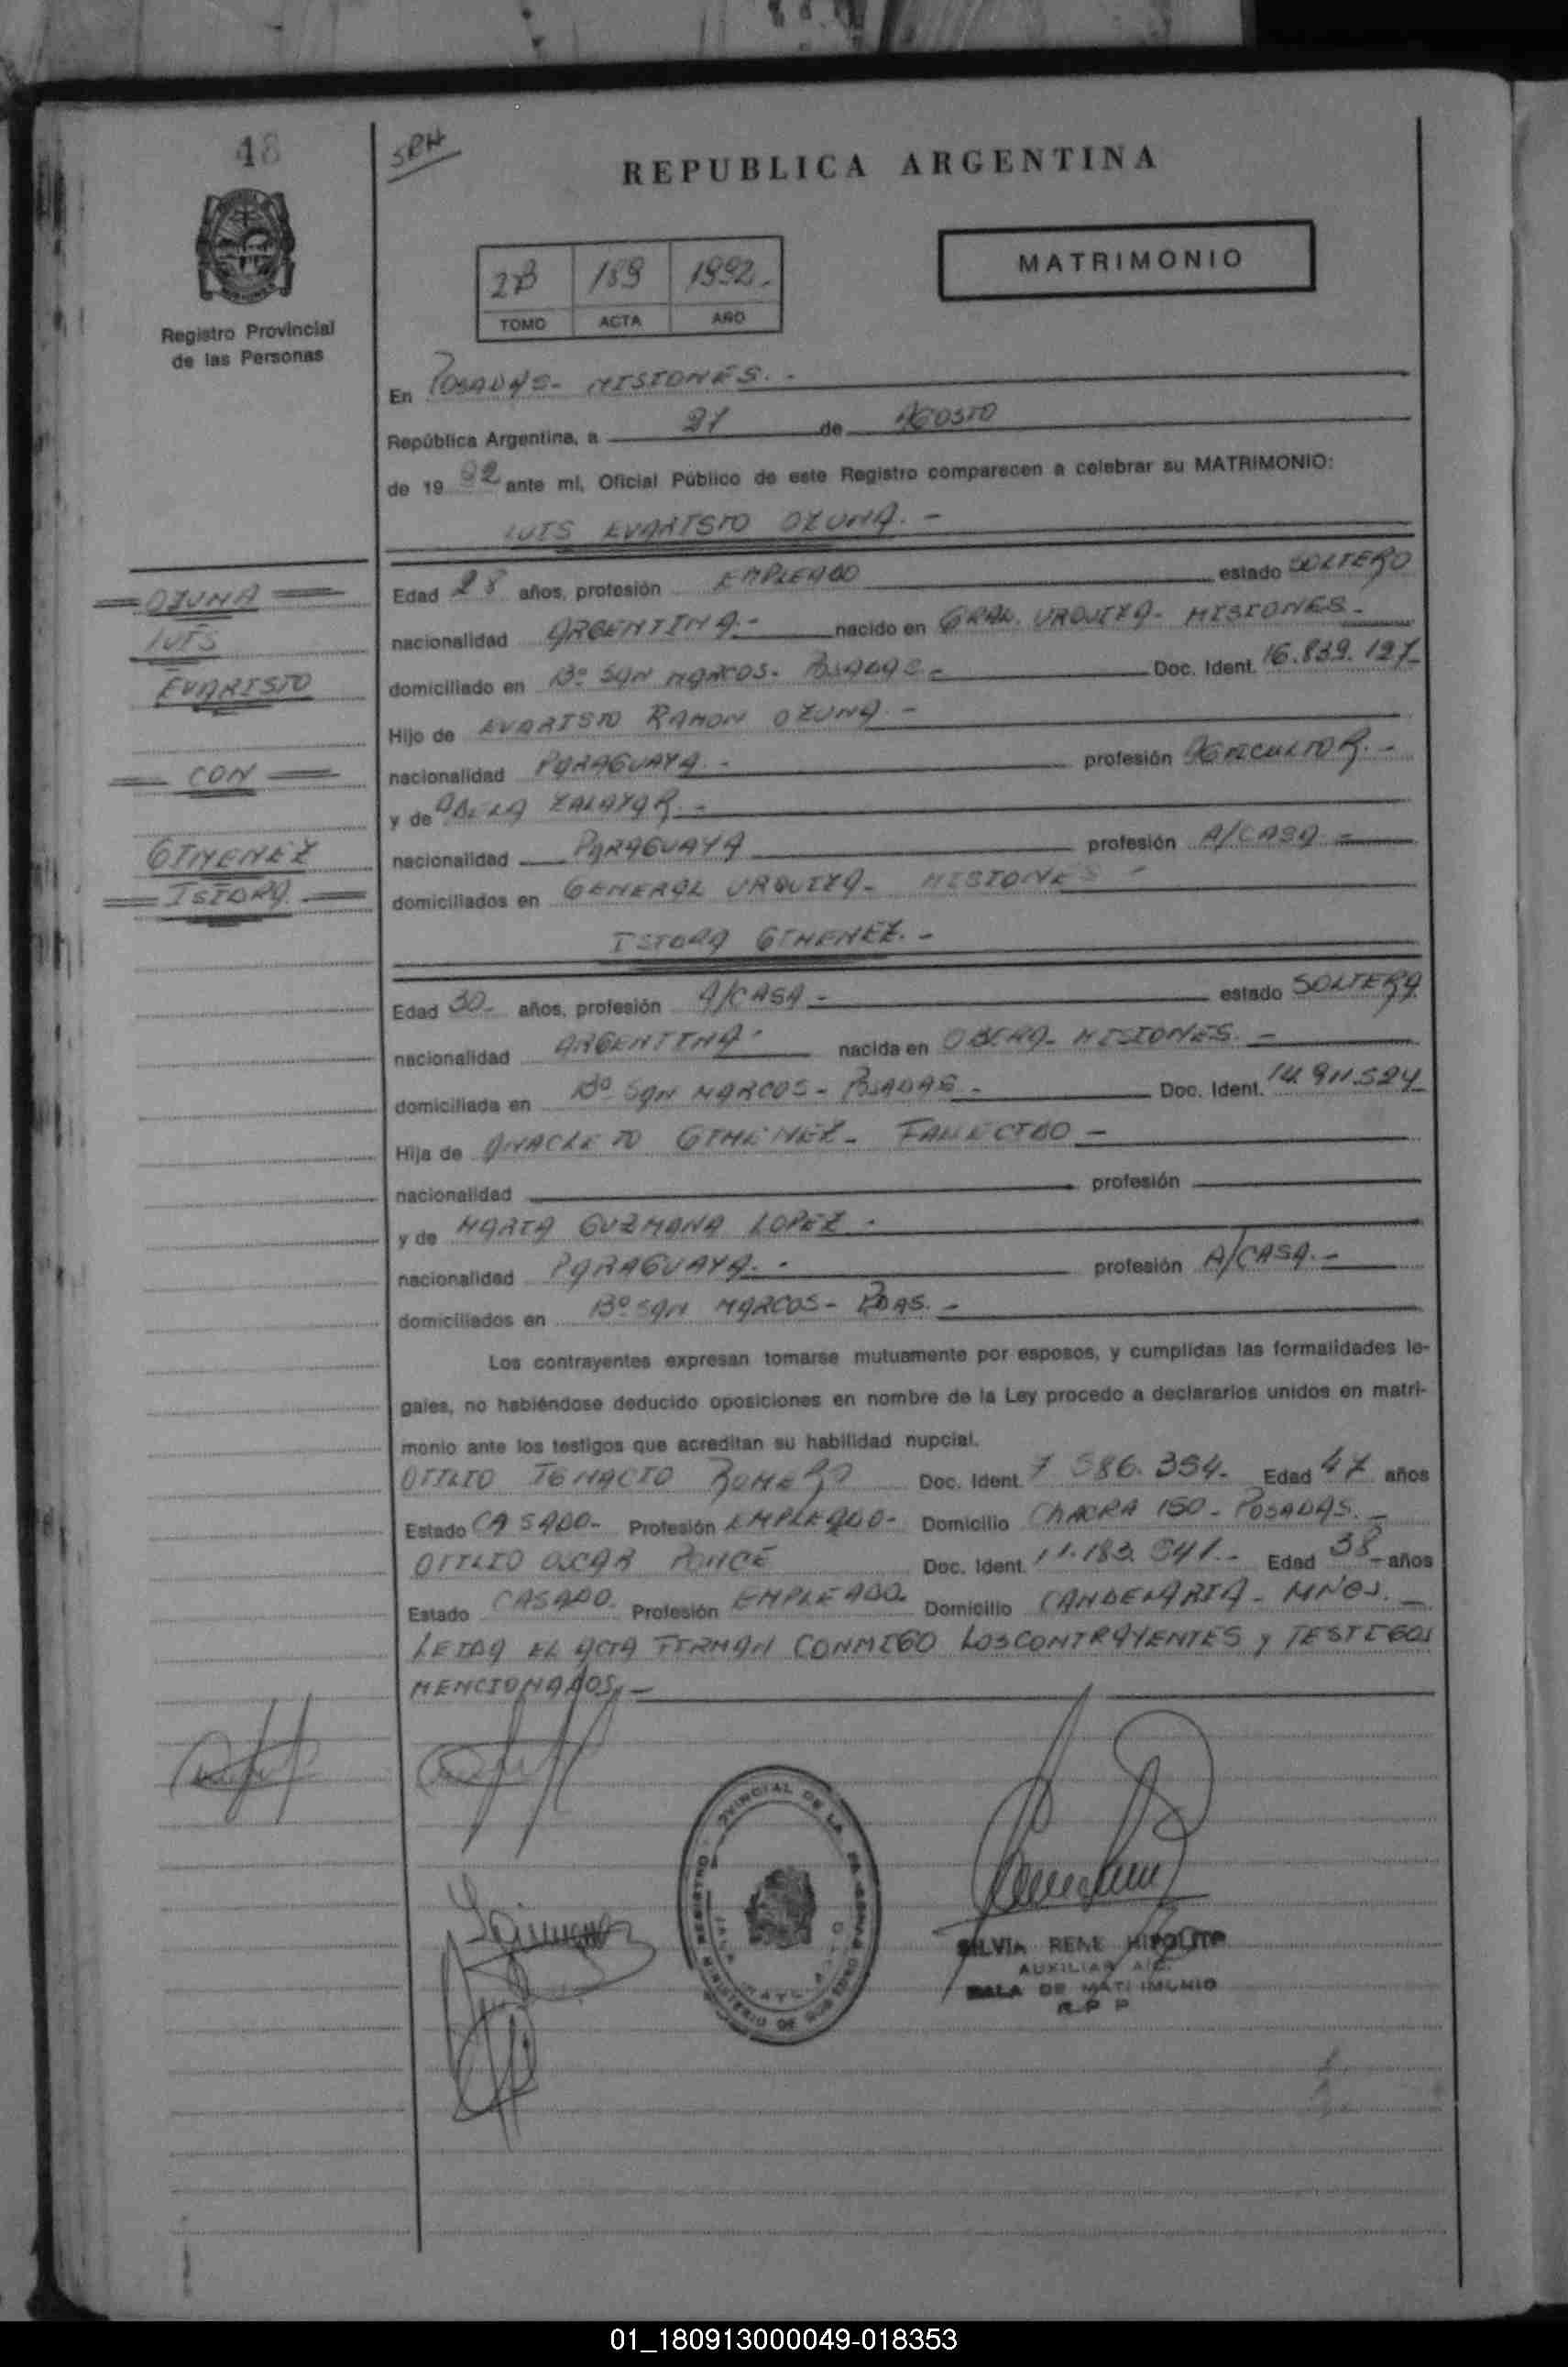 48
SRH
REPUBLICA ARGENTINA
MATRIMONIO
2B 159 1992.
TOMO ACTA AÑO
Registro Provincial
de las Personas
En POSADAS- MISIONES.-
República Argentina, a 21 de AGOSTO
de 19 92 ante mi, Oficial Público de este Registro comparecen a celebrar su MATRIMONIO:
LUIS EVARISTO OZUNA.-
OZUNA
LUIS
EVARISTO
CON
GIMENEZ
ISIDRA
Edad 28 años, profesión EMPLEADO estado SOLTERO
nacionalidad ARGENTINA.- nacido en GRAL. URQUIZA- MISIONES-
domiciliado en Bº SAN MARCOS- POSADAS- Doc. Ident. 16.839.127-
Hijo de EVARISTO RAMON OZUNA.-
nacionalidad PARAGUAYA.- profesión AGRICULTOR.-
y de ADELA ZALAZAR.-
nacionalidad PARAGUAYA profesión A/CASA-
domiciliados en GENERAL URQUIZA- MISIONES-
ISIDRA GIMENEZ.-
Edad 30- años, profesión A/CASA- estado SOLTERA
nacionalidad ARGENTINA- nacida en OBERA- MISIONES.-
domiciliada en Bº SAN MARCOS- POSADAS- Doc. Ident. 14.911.524
Hija de ANACLETO GIMENEZ- FALLECIDO-
nacionalidad profesión
y de MARIA GUZMANA LOPEZ-
nacionalidad PARAGUAYA.- profesión A/CASA.-
domiciliados en Bº SAN MARCOS- PDAS.-
Los contrayentes expresan tomarse mutuamente por esposos, y cumplidas las formalidades le-
gales, no habiéndose deducido oposiciones en nombre de la Ley procedo a declararlos unidos en matri-
monio ante los testigos que acreditan su habilidad nupcial.
OTILIO IGNACIO ROMERO Doc. Ident. 7 586.354- Edad 47 años
Estado CASADO- Profesión EMPLEADO- Domicilio CHACRA 150- POSADAS.-
OTILIO OSCAR PONCE Doc. Ident. 11.183.541.- Edad 38- años
Estado CASADO. Profesión EMPLEADO. Domicilio CANDELARIA- MNES.-
LEIDA EL ACTA FIRMAN CONMIGO LOS CONTRAYENTES y TESTIGOS
MENCIONADOS.-
SILVIA RENE HIPOLITO
AUXILIAR
SALA DE MATRIMONIO
R.P P
01_180913000049-018353